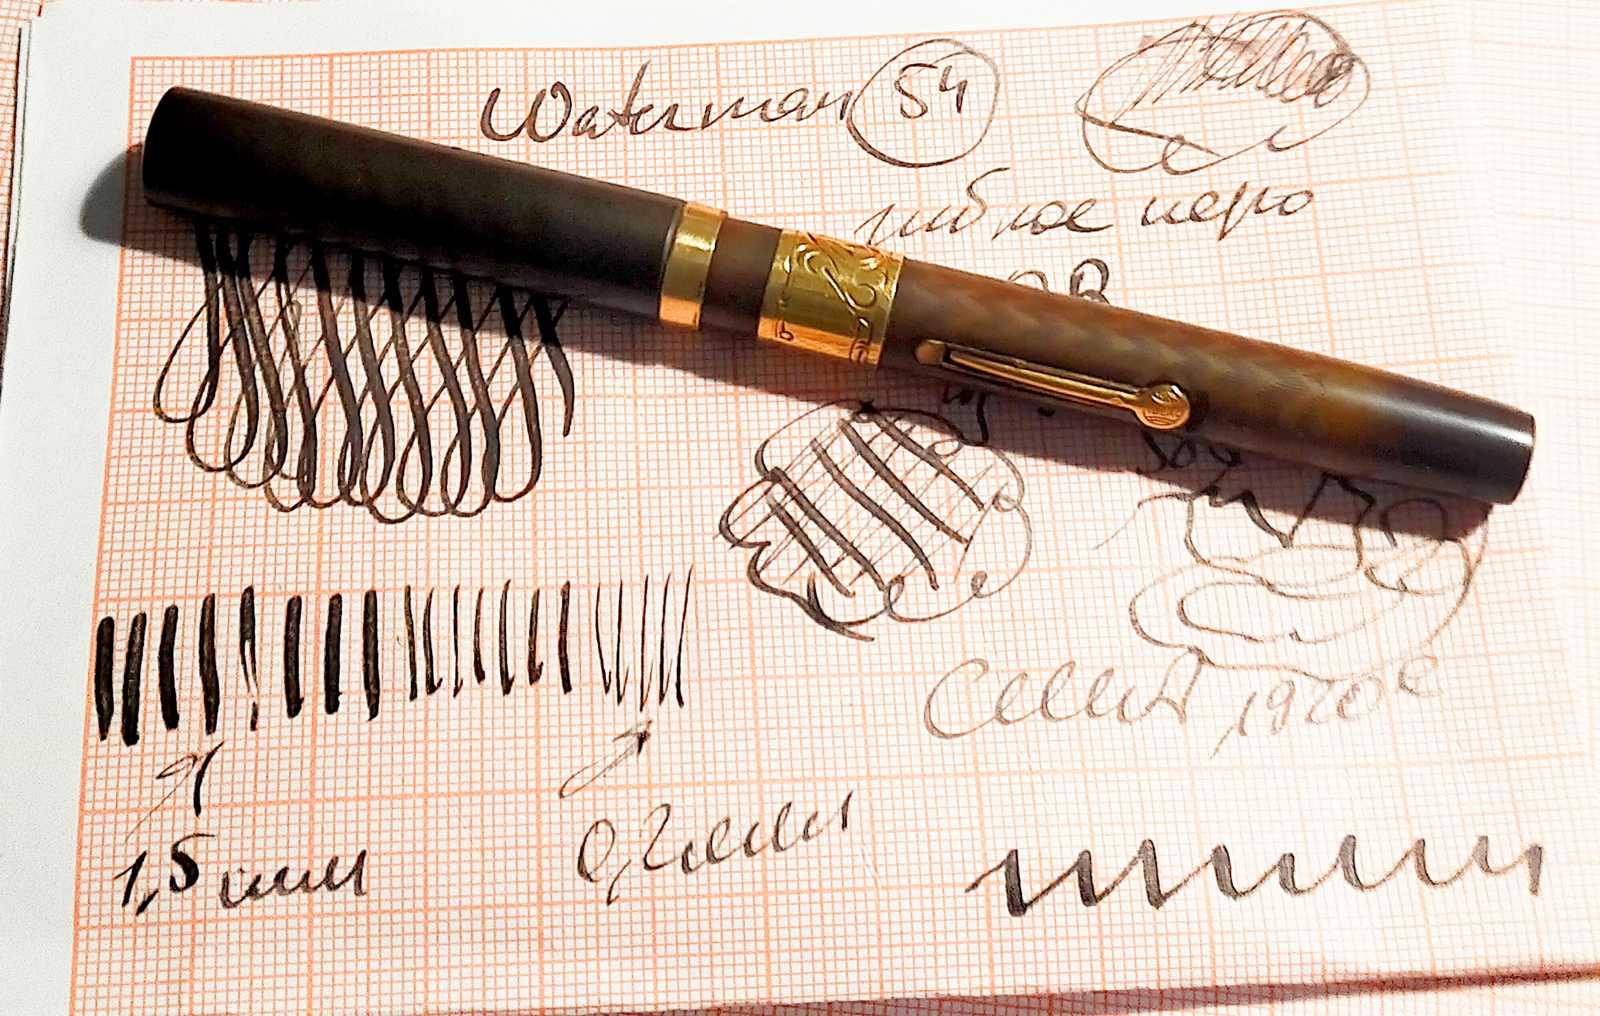 Waterman 54
гибкое перо
1,5 мм
0,2 мм
США, 1920е